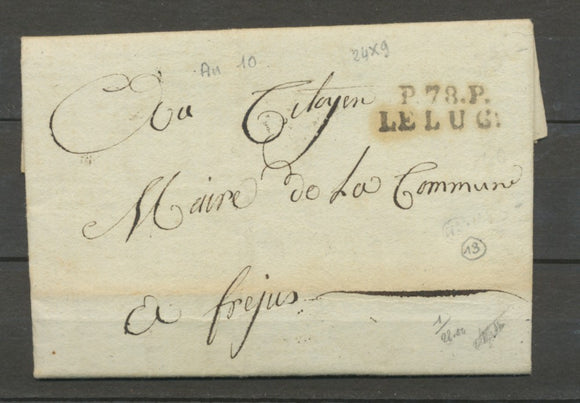 An 10
24x9
P.78.P.
LE LUC.
Au Citoyen
Maire de La Commune
a frejus
13